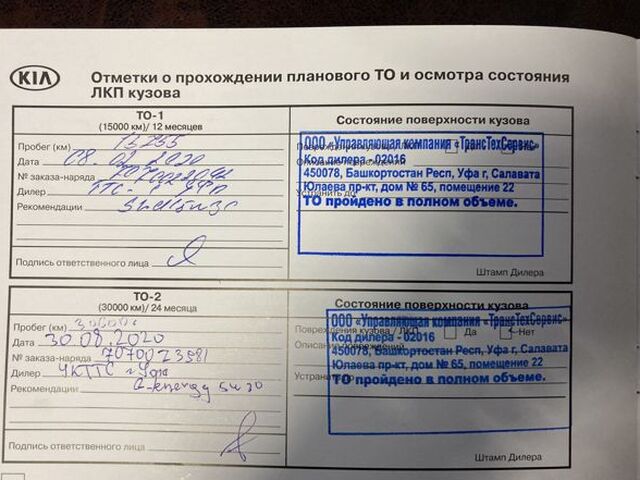 KIA
Отметки о прохождении планового ТО и осмотра состояния
ЛКП кузова
ТО-1
(15000 км)/ 12 месяцев
Состояние поверхности кузова
Пробег (км) 13255
Дата 08.02.2020
№ заказа-наряда
Дилер ТТС-
Рекомендации
Подпись ответственного лица
ООО «Управляющая компания «ТрансТехСервис»
Код дилера - 02016
450078, Башкортостан Респ, Уфа г, Салавата
Юлаева пр-кт, дом № 65, помещение 22
Устранить до
ТО пройдено в полном объеме.
Штамп Дилера
ТО-2
(30000 км)/ 24 месяца
Состояние поверхности кузова
Пробег (км)
Дата 30.08.2020
№ заказа-наряда 7070023981
Дилер УКТТС г Уфа
Рекомендации G-energy 5w30
Подпись ответственного лица
Повреждения кузова / ЛКП Да Нет
Описание повреждений
ООО «Управляющая компания «ТрансТехСервис»
Код дилера - 02016
450078, Башкортостан Респ, Уфа г, Салавата
Юлаева пр-кт, дом № 65, помещение 22
ТО пройдено в полном объеме.
Штамп Дилера